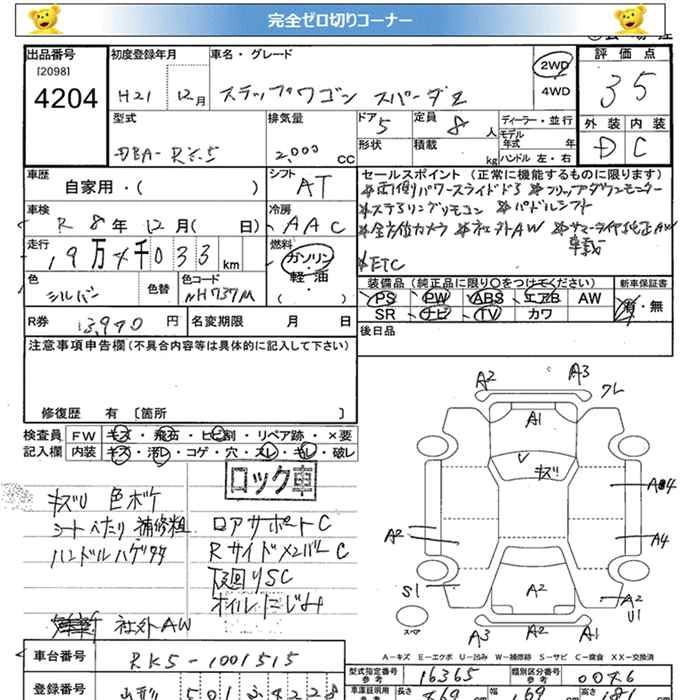 完全ゼロ切りコーナー
出品番号 初度登録年月 車名・グレード 2WD 評価点
[2098] 4WD
4204 H21 12月 ステップワゴン スパーダZ 35
型式 排気量 ドア 定員 ディーラー・並行 外装 内装
5 8人 モデル年式 年
DBA-RK5 2,000cc 形状 積載 kg ハンドル 左・右 D C
車歴 シフト セールスポイント (正常に機能するものに限ります)
自家用・( ) AT ※両側パワースライドドア ※フリップダウンモニター
車検 冷房 ※ステアリングリモコン ※パドルシフト
R8年 12月( 日) AAC ※全方位カメラ ※社外AW ※サマータイヤ純正AW
車載
走行 燃料 ※ETC
19万 千033km ガソリン
軽・油
( )
色 色替 色コード 装備品 (純正品に限り○をつけてください) 新車保証書
シルバー NH737M PS PW ABS エアB AW 有・無
SR ナビ TV カワ
R券 13,940円 名変期限 月 日 後日品
注意事項申告欄 (不具合内容等は具体的に記入して下さい)
修復歴 有 [箇所 ]
検査員 FW キズ・飛石・ヒビ割・リペア跡・×要
記入欄 内装 キズ・汚レ・コゲ・穴・スレ・キレ・破レ
ロック車
キズU 色ボケ
シートへたり 補修粗 ロアサポートC
ハンドルハゲ Rサイドメンバー C
下回りSC
オイルにじみ
社外AW
A2 A3
ワレ
A1
V キズ
A4
A2 A4
S1 A2 A2
U1
スペア
A3 A2 A1
A-キズ E-エクボ U-凹み W-補修跡 S-サビ C-腐食 XX-交換済
車台番号 RK5-1001515 型式指定番号 参考 16365 類別区分番号 参考 0076
登録番号 501 車庫証明用 参考 長さ 469 cm 幅 169 cm 高さ 181